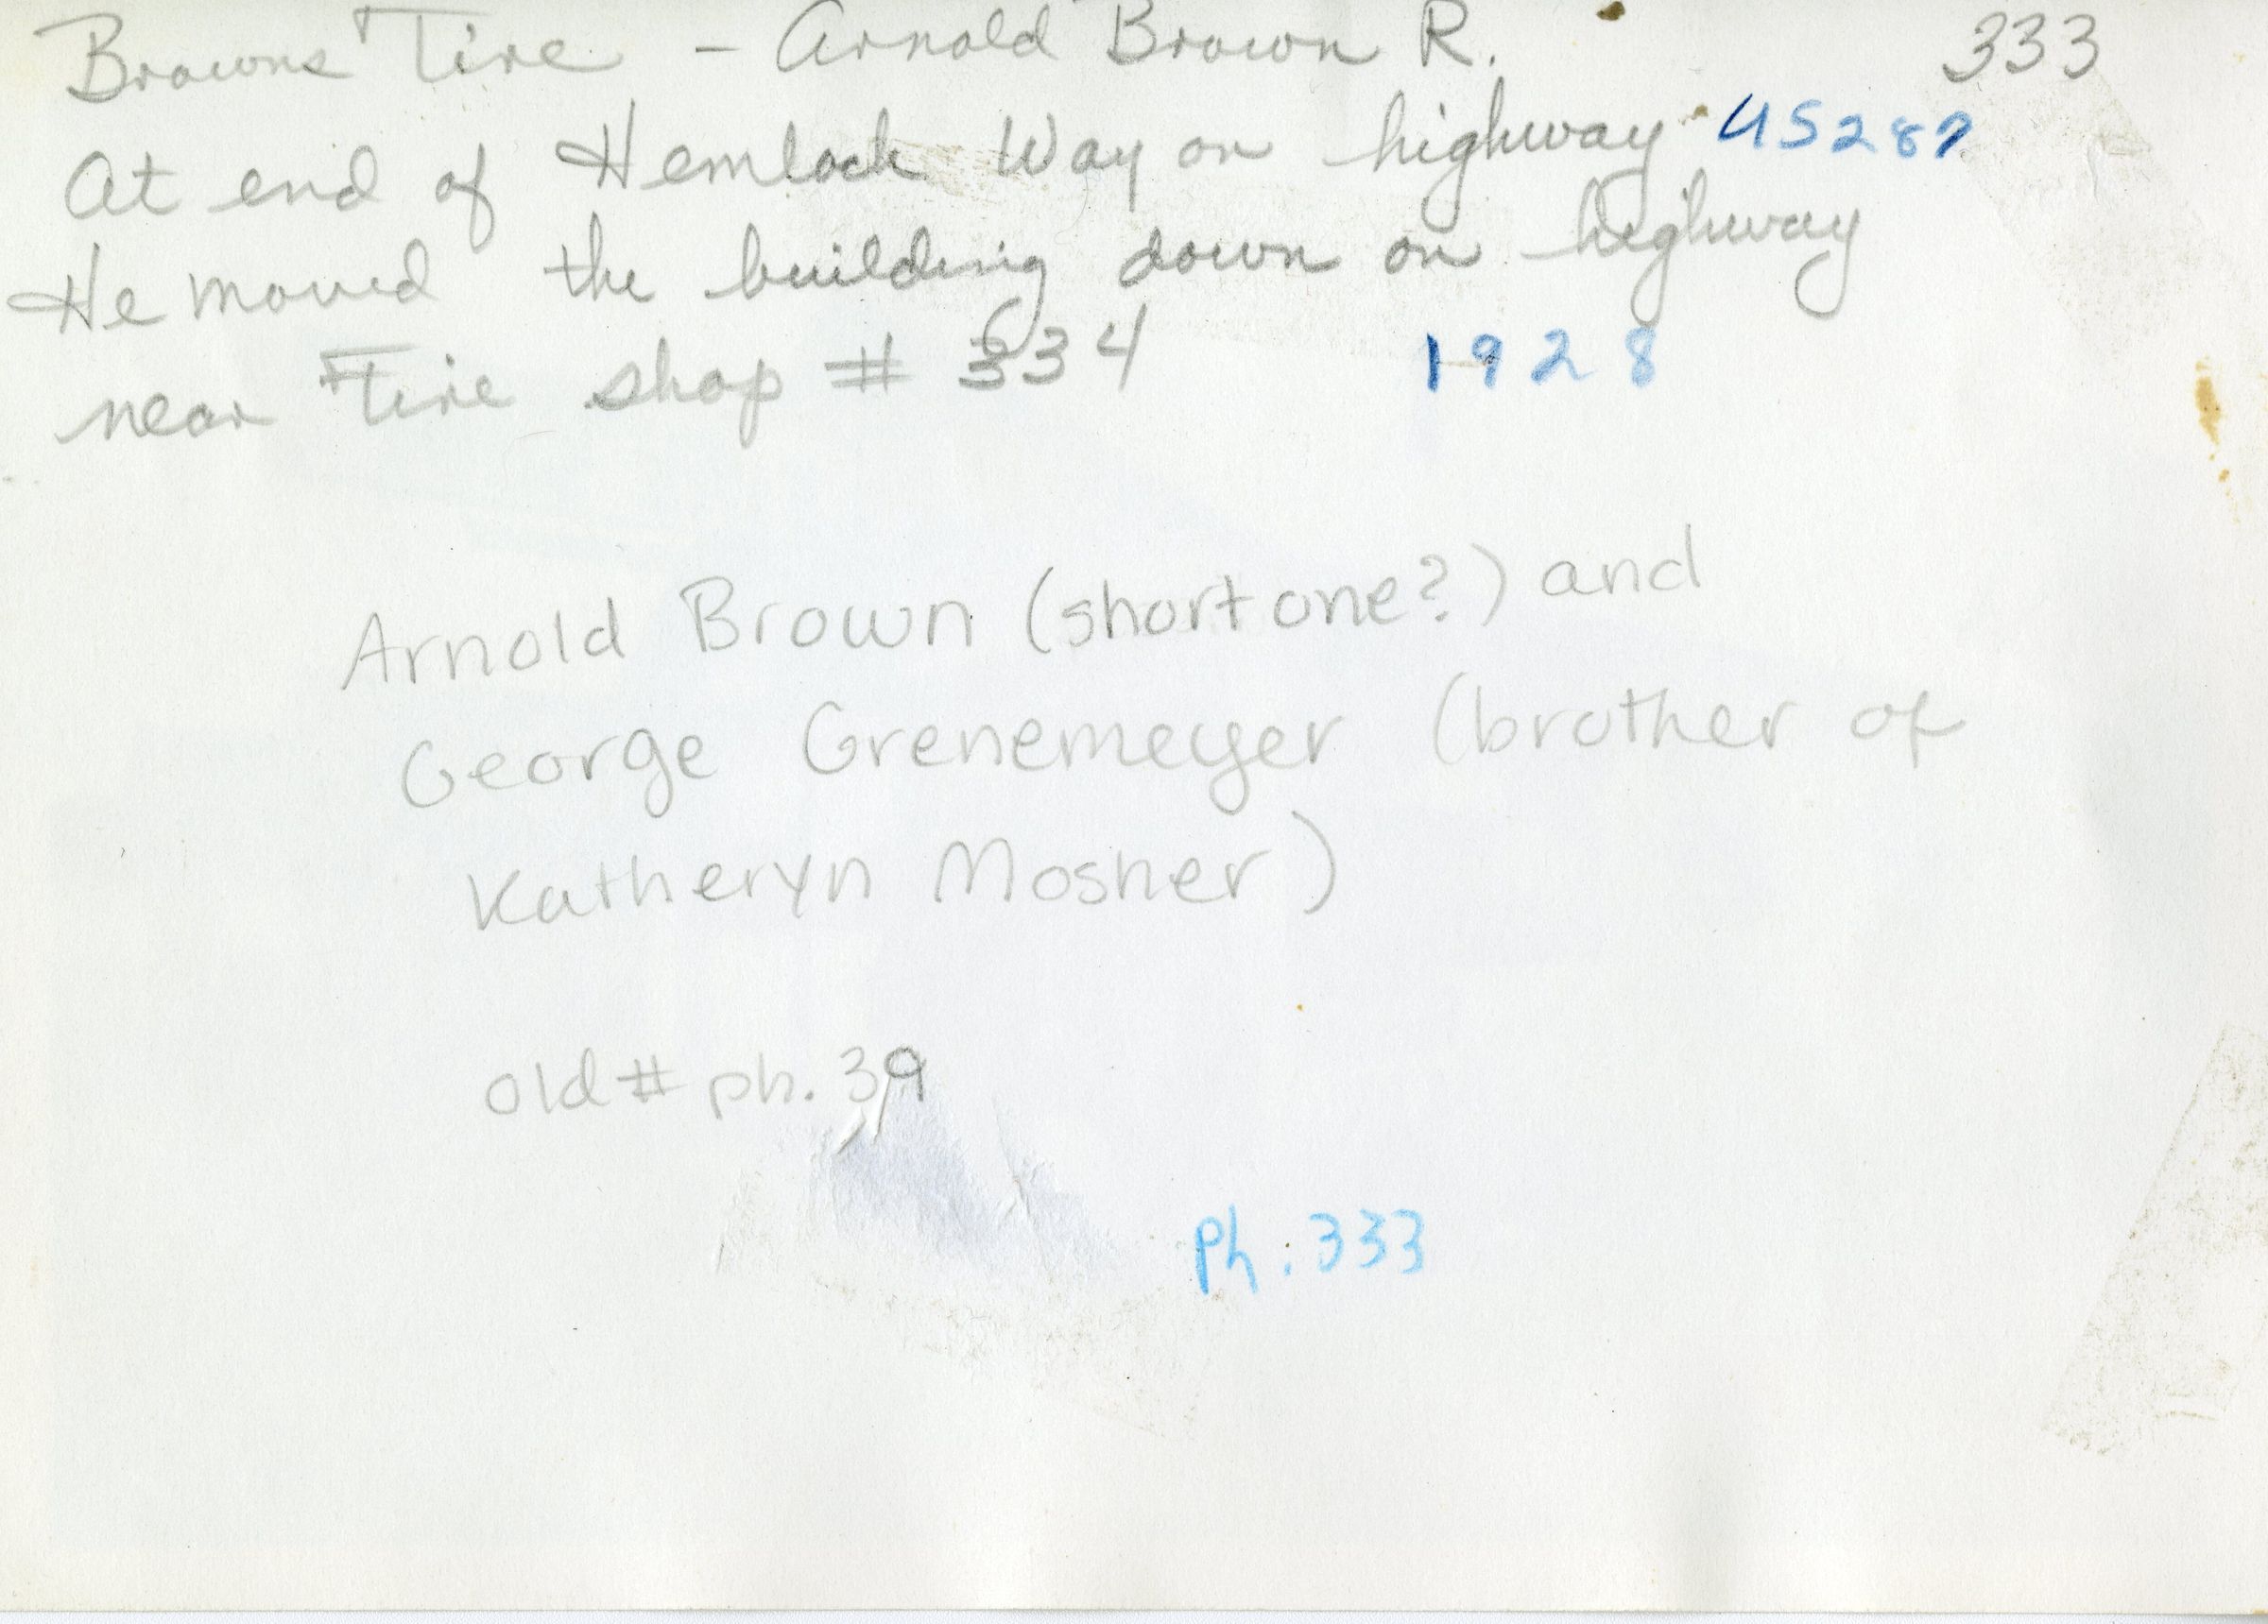 Browns Tire - Arnold Brown R. 333
At end of Hemlock Way on highway US287
He moved the building down on highway
near Tire shop # 334 1928
Arnold Brown (short one?) and
George Grenemeyer (brother of
Katheryn Mosher)
old # ph. 39
Ph: 333